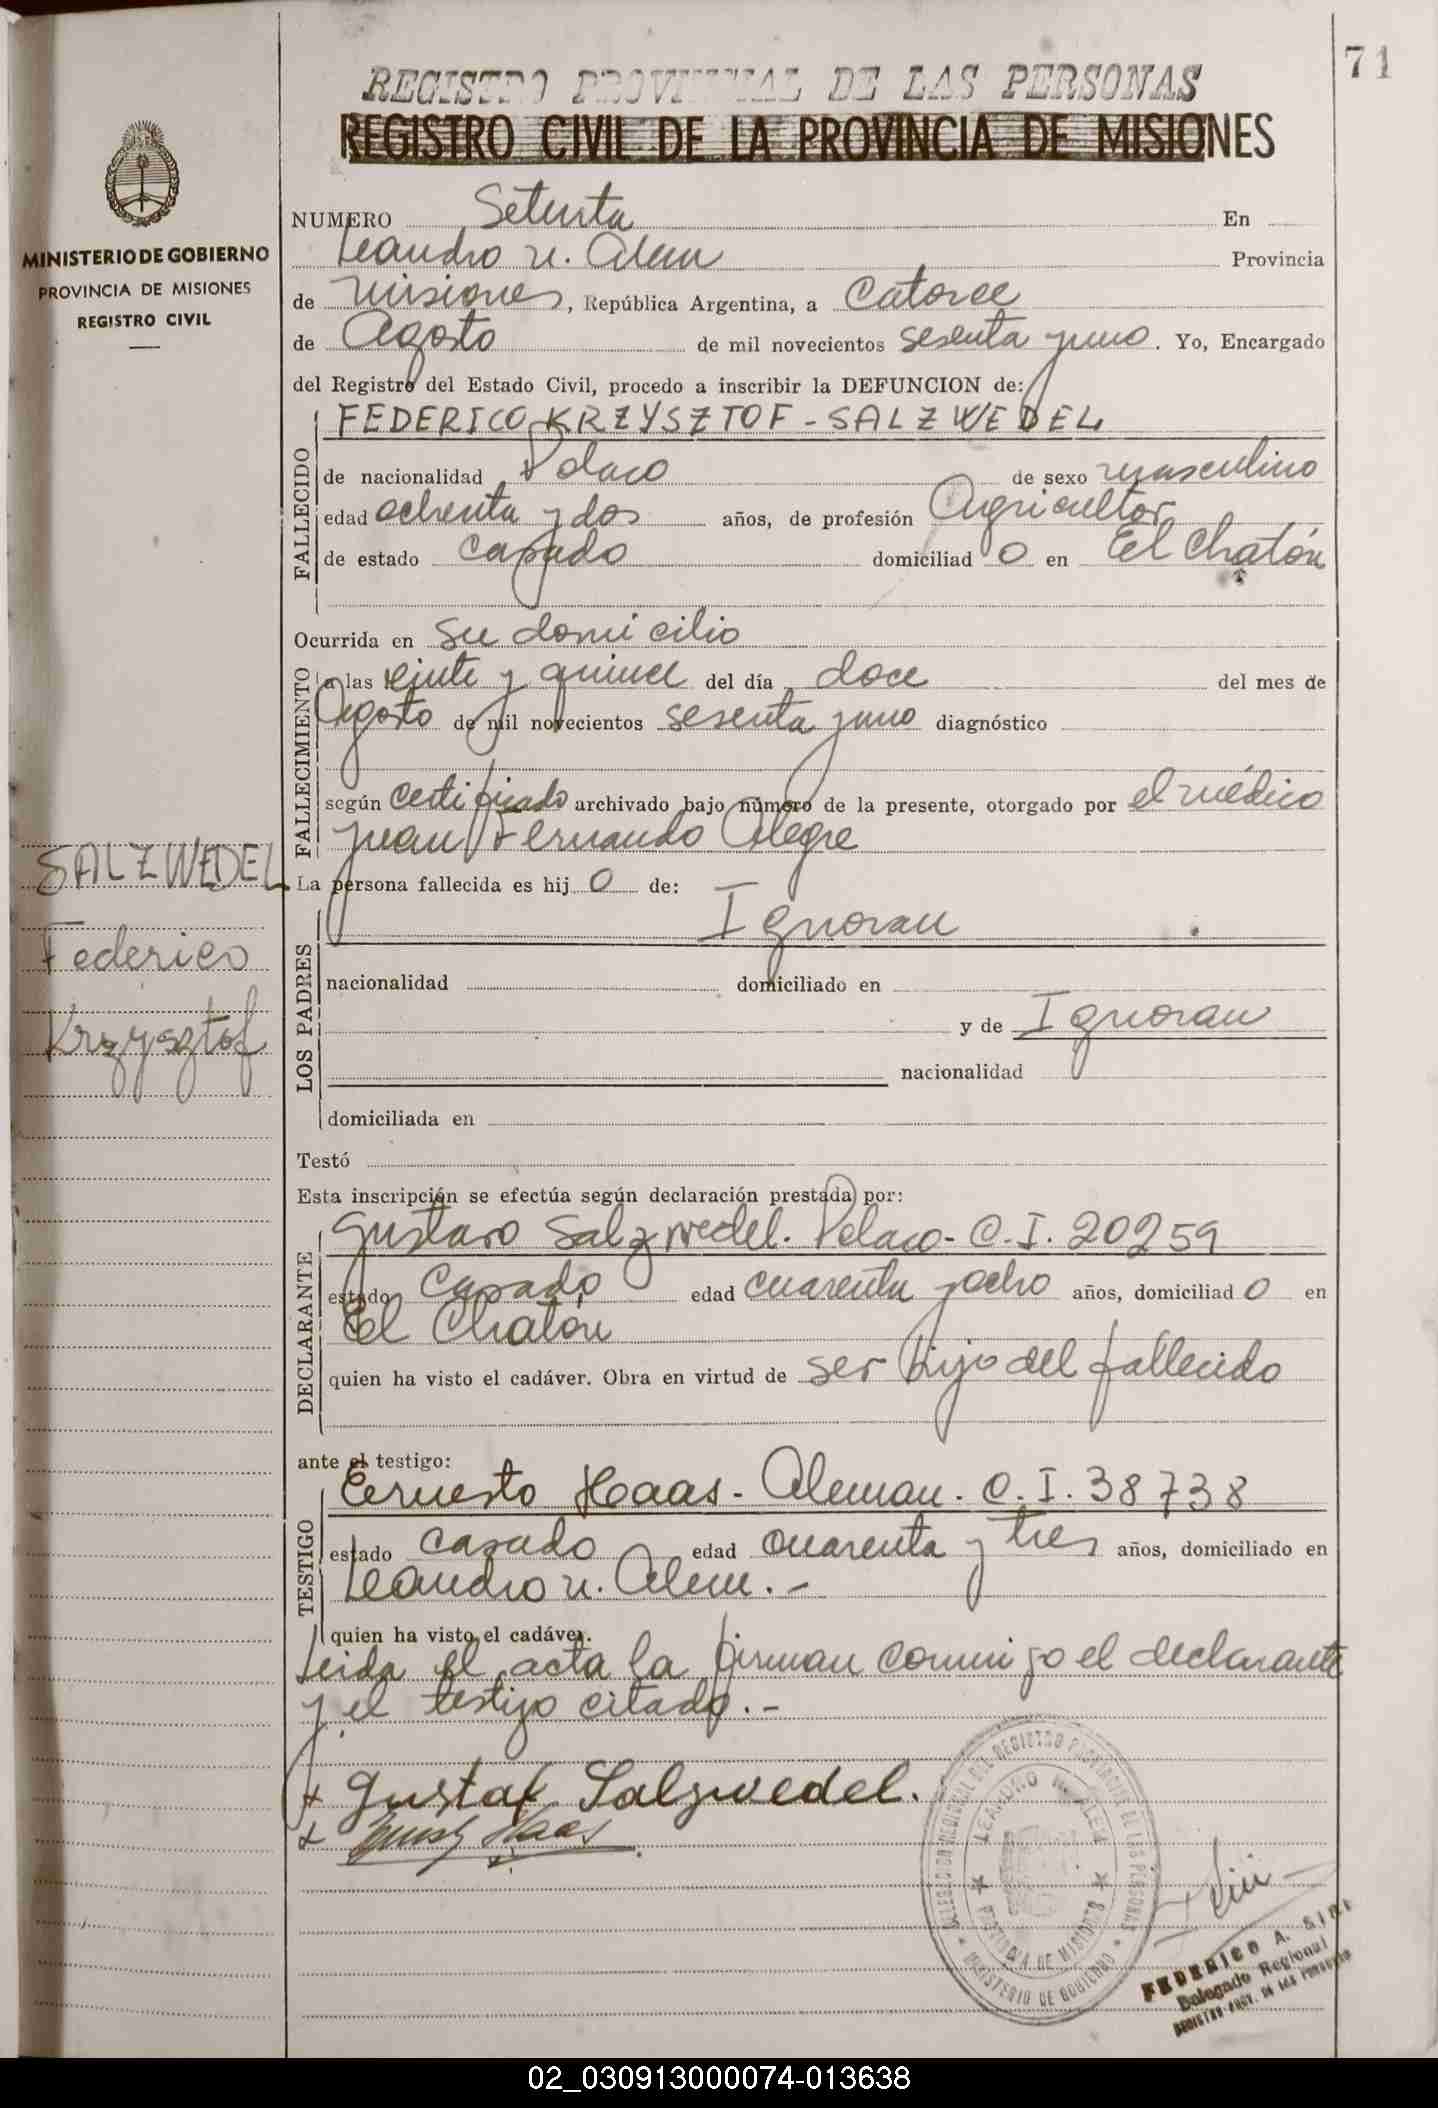 71
REGISTRO PROVINCIAL DE LAS PERSONAS
REGISTRO CIVIL DE LA PROVINCIA DE MISIONES
MINISTERIO DE GOBIERNO
PROVINCIA DE MISIONES
REGISTRO CIVIL
NUMERO Setenta En
Leandro N. Alem Provincia
de Misiones, República Argentina, a Catorce
de Agosto de mil novecientos sesenta y uno. Yo, Encargado
del Registro del Estado Civil, procedo a inscribir la DEFUNCION de:
FALLECIDO
FEDERICO KRZYSZTOF - SALZWEDEL
de nacionalidad Polaco de sexo masculino
edad ochenta y dos años, de profesión Agricultor
de estado casado domiciliad o en El Chatón
Ocurrida en su domicilio
FALLECIMIENTO
a las veinte y quince del día doce del mes de
Agosto de mil novecientos sesenta y uno diagnóstico
según certificado archivado bajo número de la presente, otorgado por el médico
Juan Fernando Alegre
SALZWEDEL
Federico
Krzysztof
La persona fallecida es hij o de:
LOS PADRES
Ignoran
nacionalidad domiciliado en
y de Ignoran
nacionalidad
domiciliada en
Testó
Esta inscripción se efectúa según declaración prestada por:
DECLARANTE
Gustavo Salzwedel. Polaco - C. I. 20259
estado Casado edad cuarenta y ocho años, domiciliad o en
El Chatón
quien ha visto el cadáver. Obra en virtud de ser hijo del fallecido
ante el testigo:
TESTIGO
Ernesto Haas - Aleman. C. I. 38738
estado casado edad cuarenta y tres años, domiciliado en
Leandro N. Alem. -
quien ha visto el cadáver.
Leida el acta la firman conmigo el declarante
y el testigo citado. -
+ Gustaf Salzwedel.
+ Ernst Haas
DELEGACION REGIONAL DEL REGISTRO PROVINCIAL DE LAS PERSONAS
LEANDRO N. ALEM
PROVINCIA DE MISIONES
MINISTERIO DE GOBIERNO
FEDERICO A.
Delegado Regional
REGISTRO PROV. DE LAS PERSONAS
02_030913000074-013638